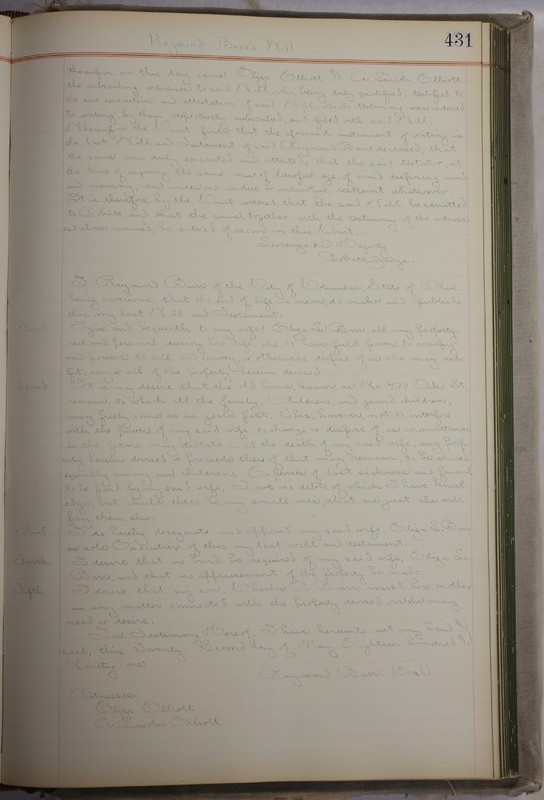 431
Raymond Burr's Will
thereupon on this day came Eliza Elliott & A. Lincoln Elliott
the subscribing witnesses to said Will, who, being duly qualified, testified to
the due execution and attestation of said Will which testimony was reduced
to writing by them respectively subscribed, and filed with said Will.
Whereupon the Court finds that the aforesaid instrument of writing is
the last Will and Testament of said Raymond Burr deceased, that
the same was duly executed and attested, that the said testator, at
the time of signing the same was of lawful age, of sound disposing mind
and memory, and under no undue or unlawful restraint whatsoever.
It is therefore by the Court ordered that the said Will be admitted
to Probate, and that the same, together with the testimony of the witnesses
as above named, be entered of record in this Court.
Probate Judge.
I, Raymond Burr of the City of Columbus, State of Ohio
being conscious that the end of life is near, do make and publish
this my last Will and Testament:
First. I give and bequeath to my wife, Eliza S. Burr, all my property,
real and personal during her life, she to have full power to
and power to sell and convey, or otherwise dispose of as she may see
fit, any or all of the property herein devised.
Second. It is my desire that the old home, known as No. 420 Oak St,
remain to which all the family, Children, and grand children,
may freely come as in years past. This, however, not to interfere
with the power of my said wife, to change or dispose of, as circumstances
in the future may dictate. At the death of my said wife, any prop-
erty herein devised or proceeds thereof that may remain, to be divided
equally among our children. Expenses of last sickness and funeral
to be paid by my said wife, I owe no debts of which I have knowl-
edge, but should there be any small ones, that are just she will
pay them also.
Third. I do hereby designate and appoint my said wife, Eliza S. Burr
as sole Executrix of this my last will and testament.
Fourth. I desire that no bond be required of my said wife, Eliza S.
Burr, and that no appraisement of the property be made.
Fifth. I desire that my son, Charles E. Burr, assist his mother
in any matter connected with the property devised as she may
need or desire.
In Testimony Hereof, I have hereunto set my hand &
seal, this Twenty Second day of May Eighteen hundred &
Ninety one
Raymond Burr (Seal)
Witnesses
Eliza Elliott
A. Lincoln Elliott